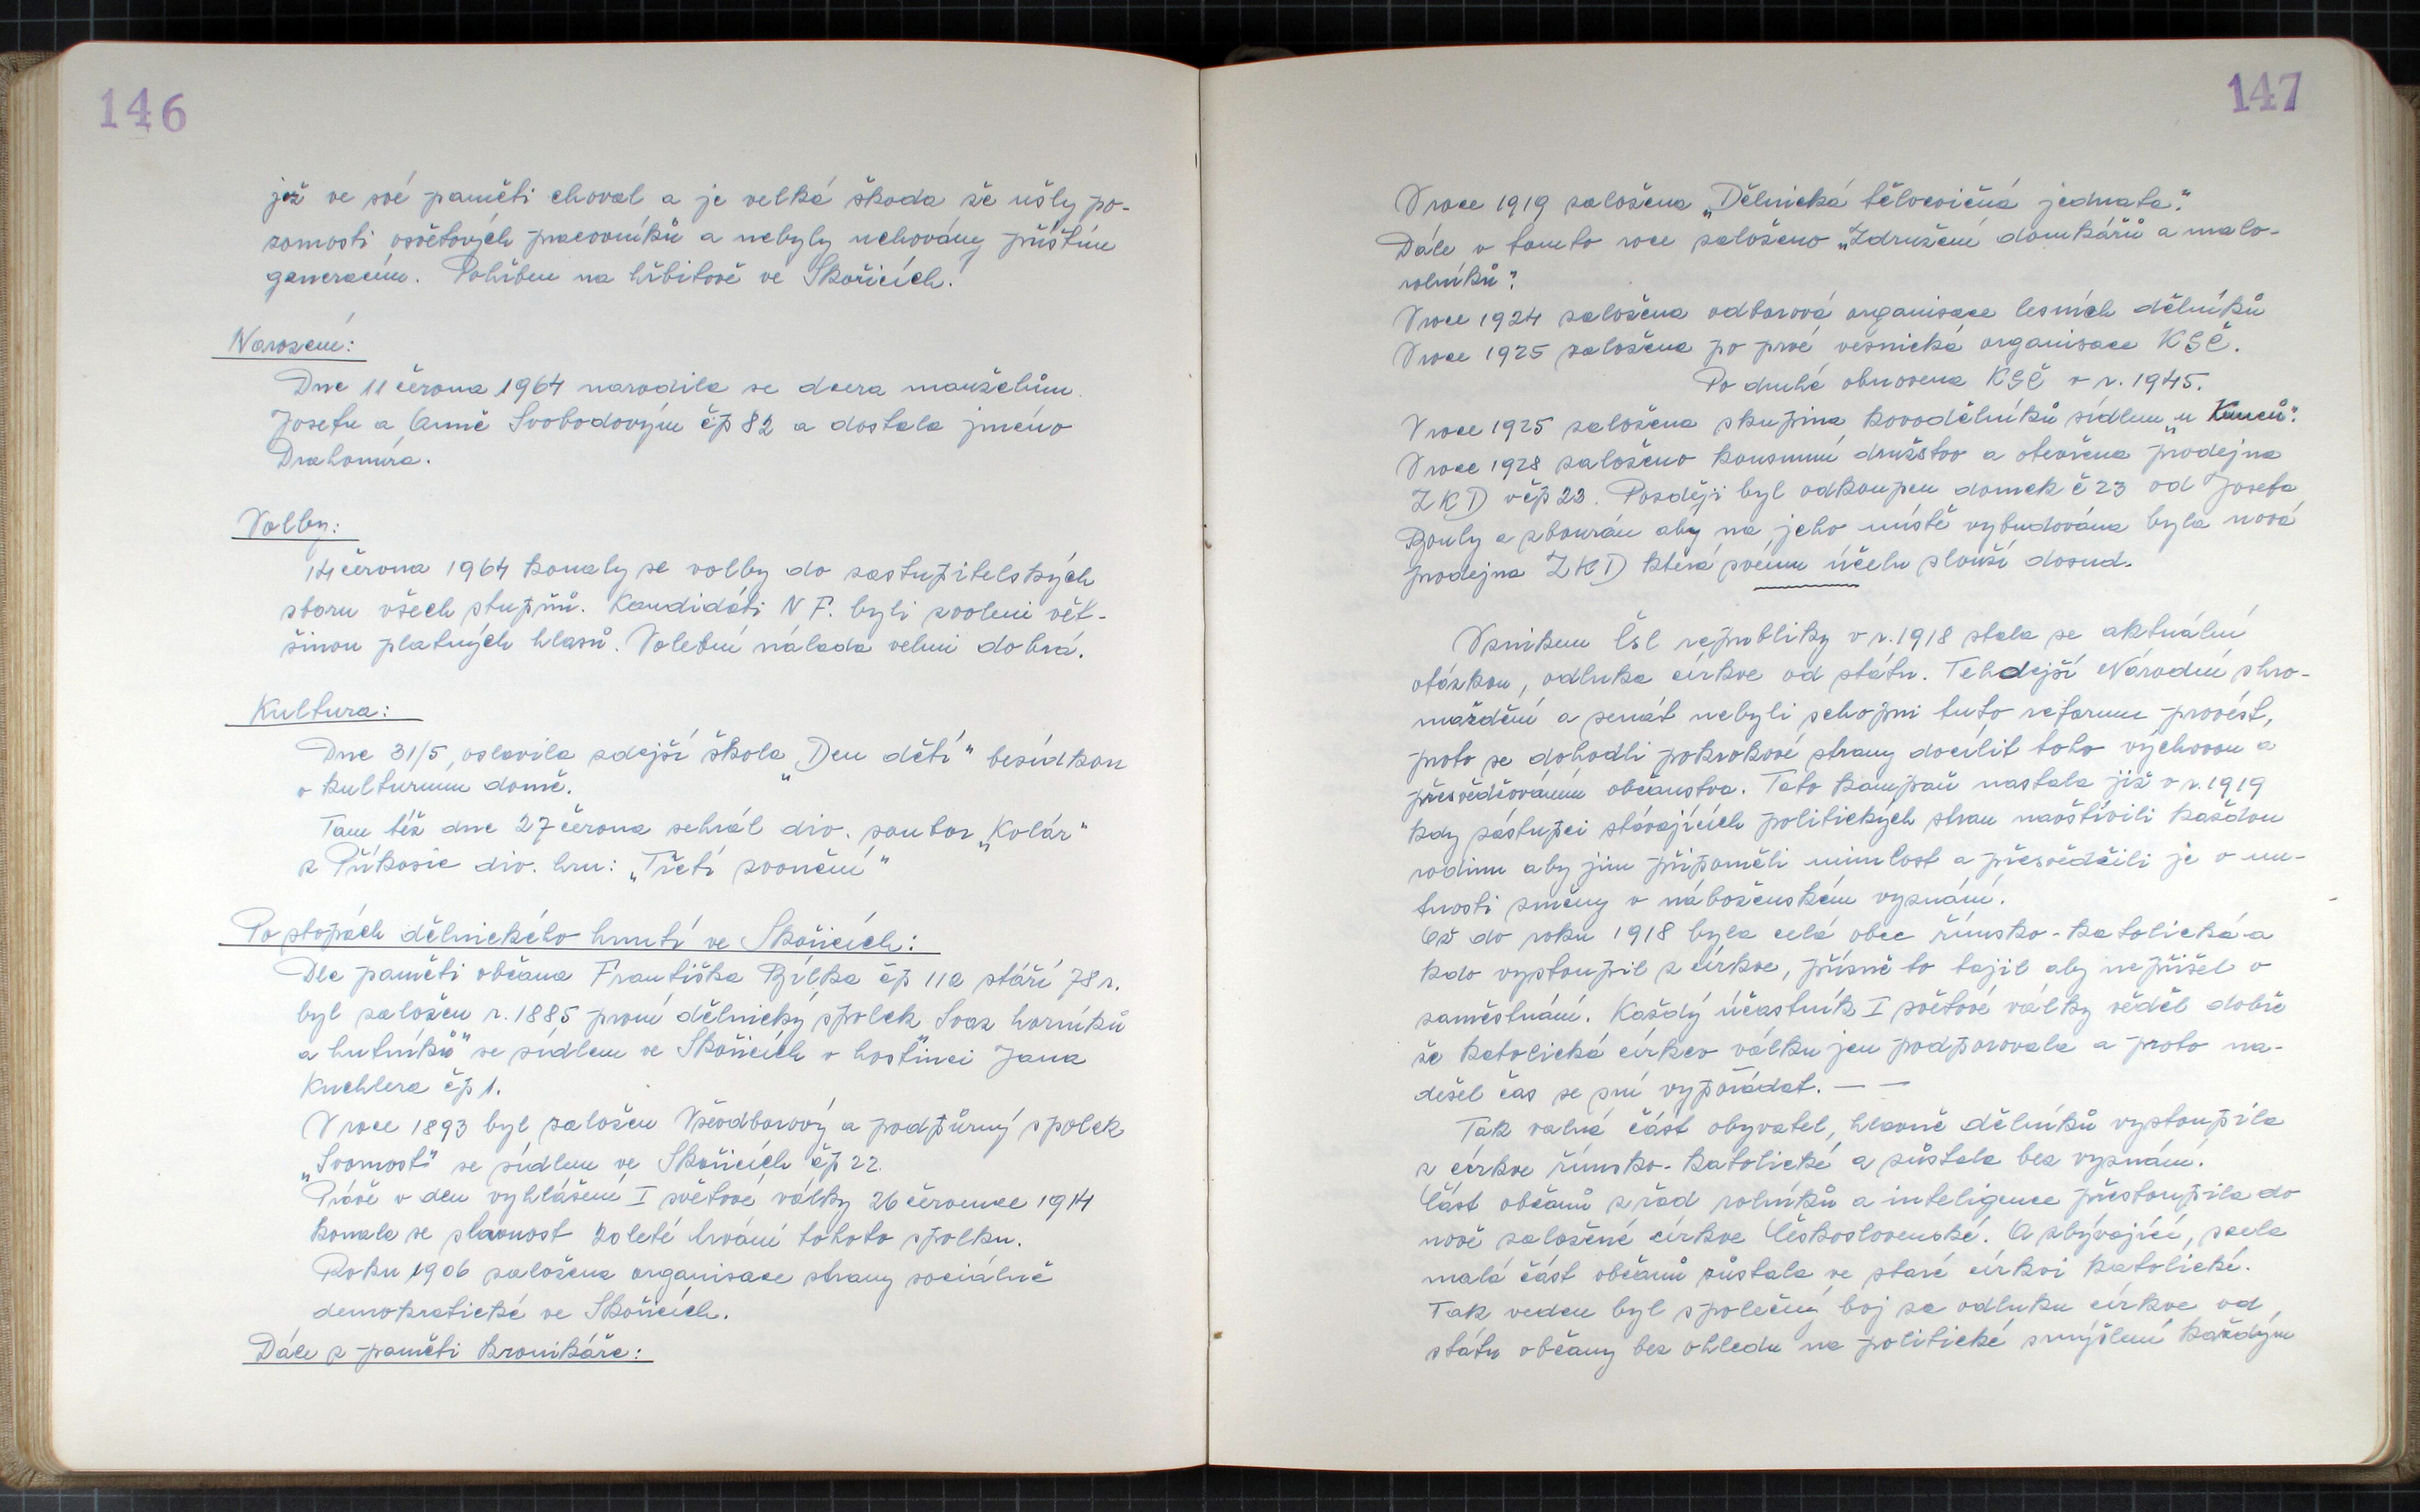 146
jež ve své paměti choval a je velká škoda že ušly po-
zornosti osvětových pracovníků a nebyly uchovány příštím
generacím. Pohřben na hřbitově ve Skořicích.
Narození:
Dne 11 června 1964 narodila se dcera manželům
Josefu a Anně Svobodovým čp 82 a dostala jméno
Drahomíra.
Volby:
14 června 1964 konaly se volby do zastupitelských
sboru všech stupňů. Kandidáti N F. byli zvoleni vět-
šinou platných hlasů. Volební nálada velmi dobrá.
Kultura:
Dne 31/5, oslavila zdejší škola „Den dětí" besídkou
v kulturním domě.
Tam též dne 27 června sehrál div. soubor „Kolár"
z Příkosic div. hru: „Třetí zvonění"
Po stopách dělnického hnutí ve Skořicích:
Dle paměti občana Františka Bílka čp 112 stáří 78 r.
byl založen r. 1885 první dělnický spolek „Svaz horníků
a hutníků" se sídlem ve Skořicích v hostinci Jana
Kuchlera čp 1.
V roce 1893 byl založen Všeodborový a podpůrný spolek
„Svornost" se sídlem ve Skořicích čp 22.
Právě v den vyhlášení I světové války 26 července 1914
konala se slavnost 20leté trvání tohoto spolku.
Roku 1906 založena organisace strany sociálně
demokratické ve Skořicích.
Dále z paměti kronikáře:
147
V roce 1919 založena „Dělnická tělocvičná jednata".
Dále v tomto roce založeno „Združení domkářů a malo-
rolníků".
V roce 1924 založena odborová organisace lesních dělníků
V roce 1925 založena po prvé vesnická organisace KSČ.
Po druhé obnovena KSČ v r. 1945.
V roce 1925 založena skupina kovodělníků sídlem „u Kunců".
V roce 1928 založeno konsumní družstvo a otevřena prodejna
ZKD v čp 23. Později byl odkoupen domek č 23 od Josefa
Bouly a zbourán aby na jeho místě vybudována byla nová
prodejna ZKD která svému účelu slouží dosud.
Vznikem Čsl republiky v r. 1918 stala se aktuální
otázkou, odluka církve od státu. Tehdejší Národní shro-
maždění a senát nebyli schopni tuto reformu provést,
proto se dohodli pokrokové strany docílit toho výchovou a
přesvědčováním občanstva. Tato kampaň nastala již v r. 1919
kdy zástupci stávajících politických stran navštívili každou
rodinu aby jim připoměli minulost a přesvědčili je o nu-
tnosti změny v náboženském vyznání.
Až do roku 1918 byla celá obec římsko-katolická a
kdo vystoupil z církve, přísně to tajil aby nepřišel o
zaměstnání. Každý účastník I světové války věděl dobře
že katolická církev válku jen podporovala a proto na-
dešel čas se sní vypořádat. — —
Tak valná část obyvatel, hlavně dělníků vystoupila
z církve římsko-katolické a zůstala bez vyznání.
Část občanů z řad rolníků a inteligence přestoupila do
nově založené církve Československé. A zbývající, zcela
malá část občanů zůstala ve staré církvi katolické.
Tak veden byl společný boj za odluku církve od
státu občany bez ohledu na politické smýšlení každým